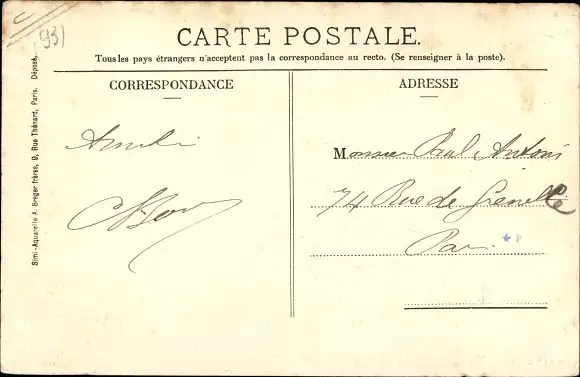 931
CARTE POSTALE.
Tous les pays étrangers n'acceptent pas la correspondance au recto. (Se renseigner à la poste).
CORRESPONDANCE
ADRESSE
Monsieur Paul Antoni
74 Rue de Grenelle
Paris
Simi-Aquarelle A. Breger frères, 9, Rue Thénard, Paris. Déposé.